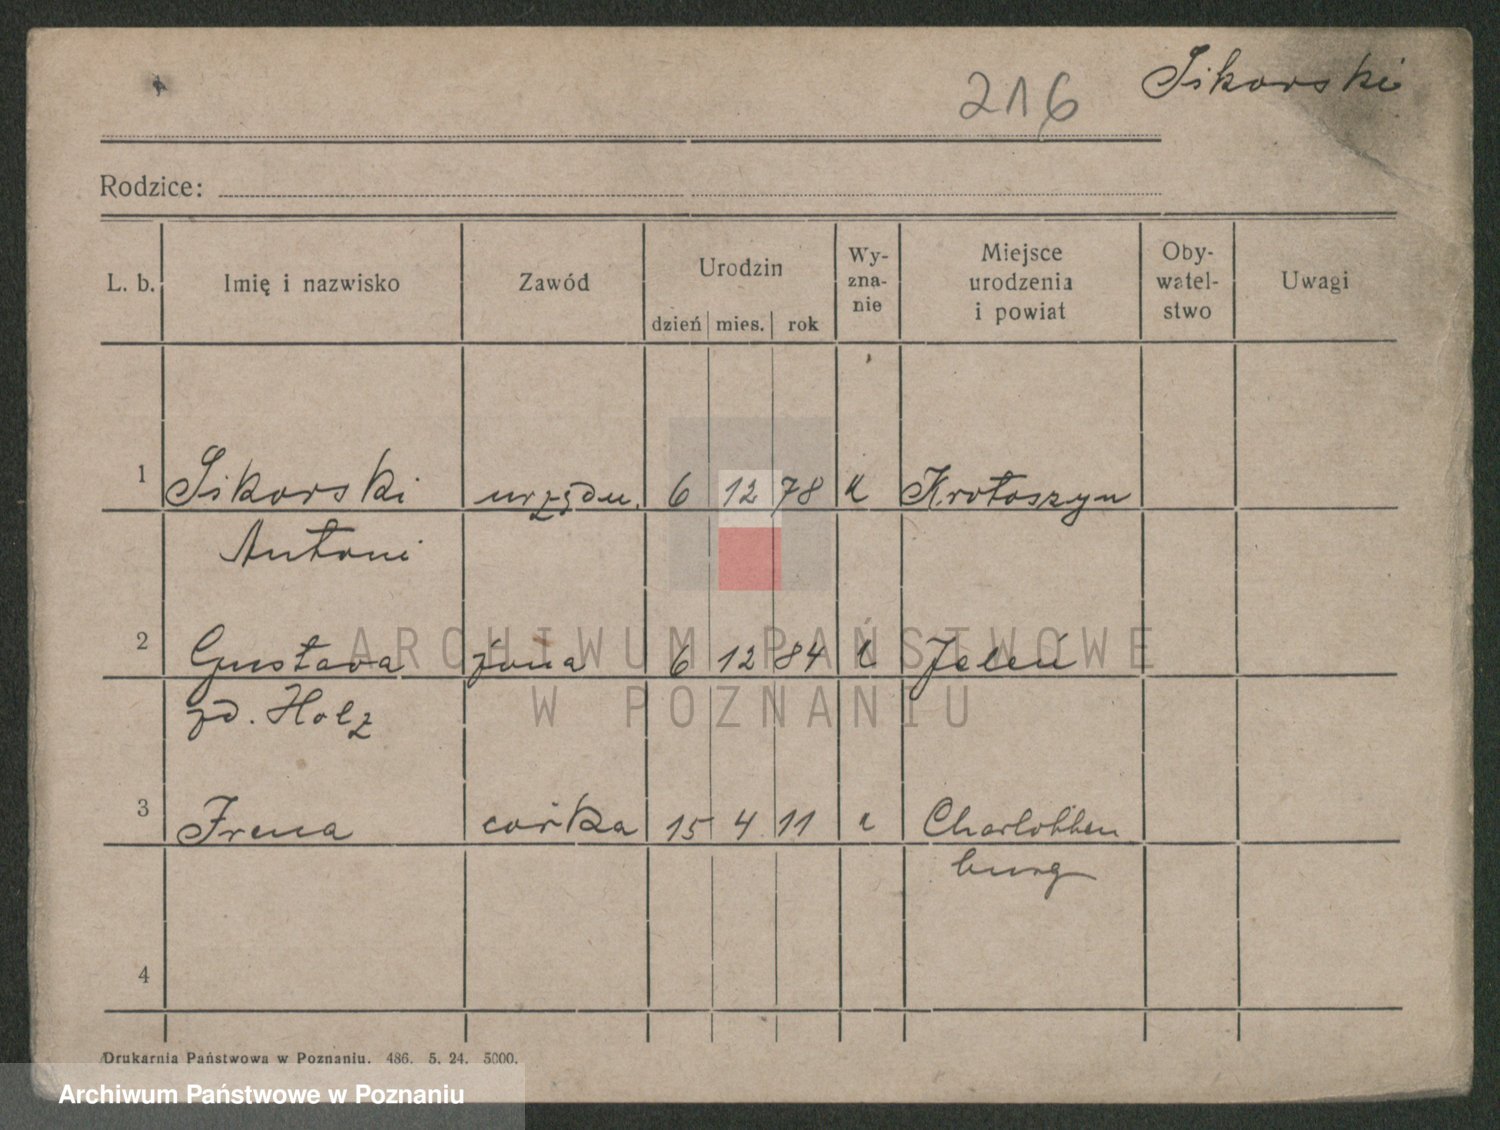 216 Sikorski
Rodzice:
L. b. Imię i nazwisko Zawód Urodzin dzień mies. rok Wy-zna-nie Miejsce urodzenia i powiat Oby-watel-stwo Uwagi
1 Sikorski urzędn. 6 12 78 k Krotoszyn
Antoni
2 Gustava żona 6 12 84 Jeleń
zd. Holz
3 Irena córka 15 4 11 Charlotten
burg
4
ARCHIWUM PAŃSTWOWE
W POZNANIU
Drukarnia Państwowa w Poznaniu. 486. 5. 24. 5000.
Archiwum Państwowe w Poznaniu